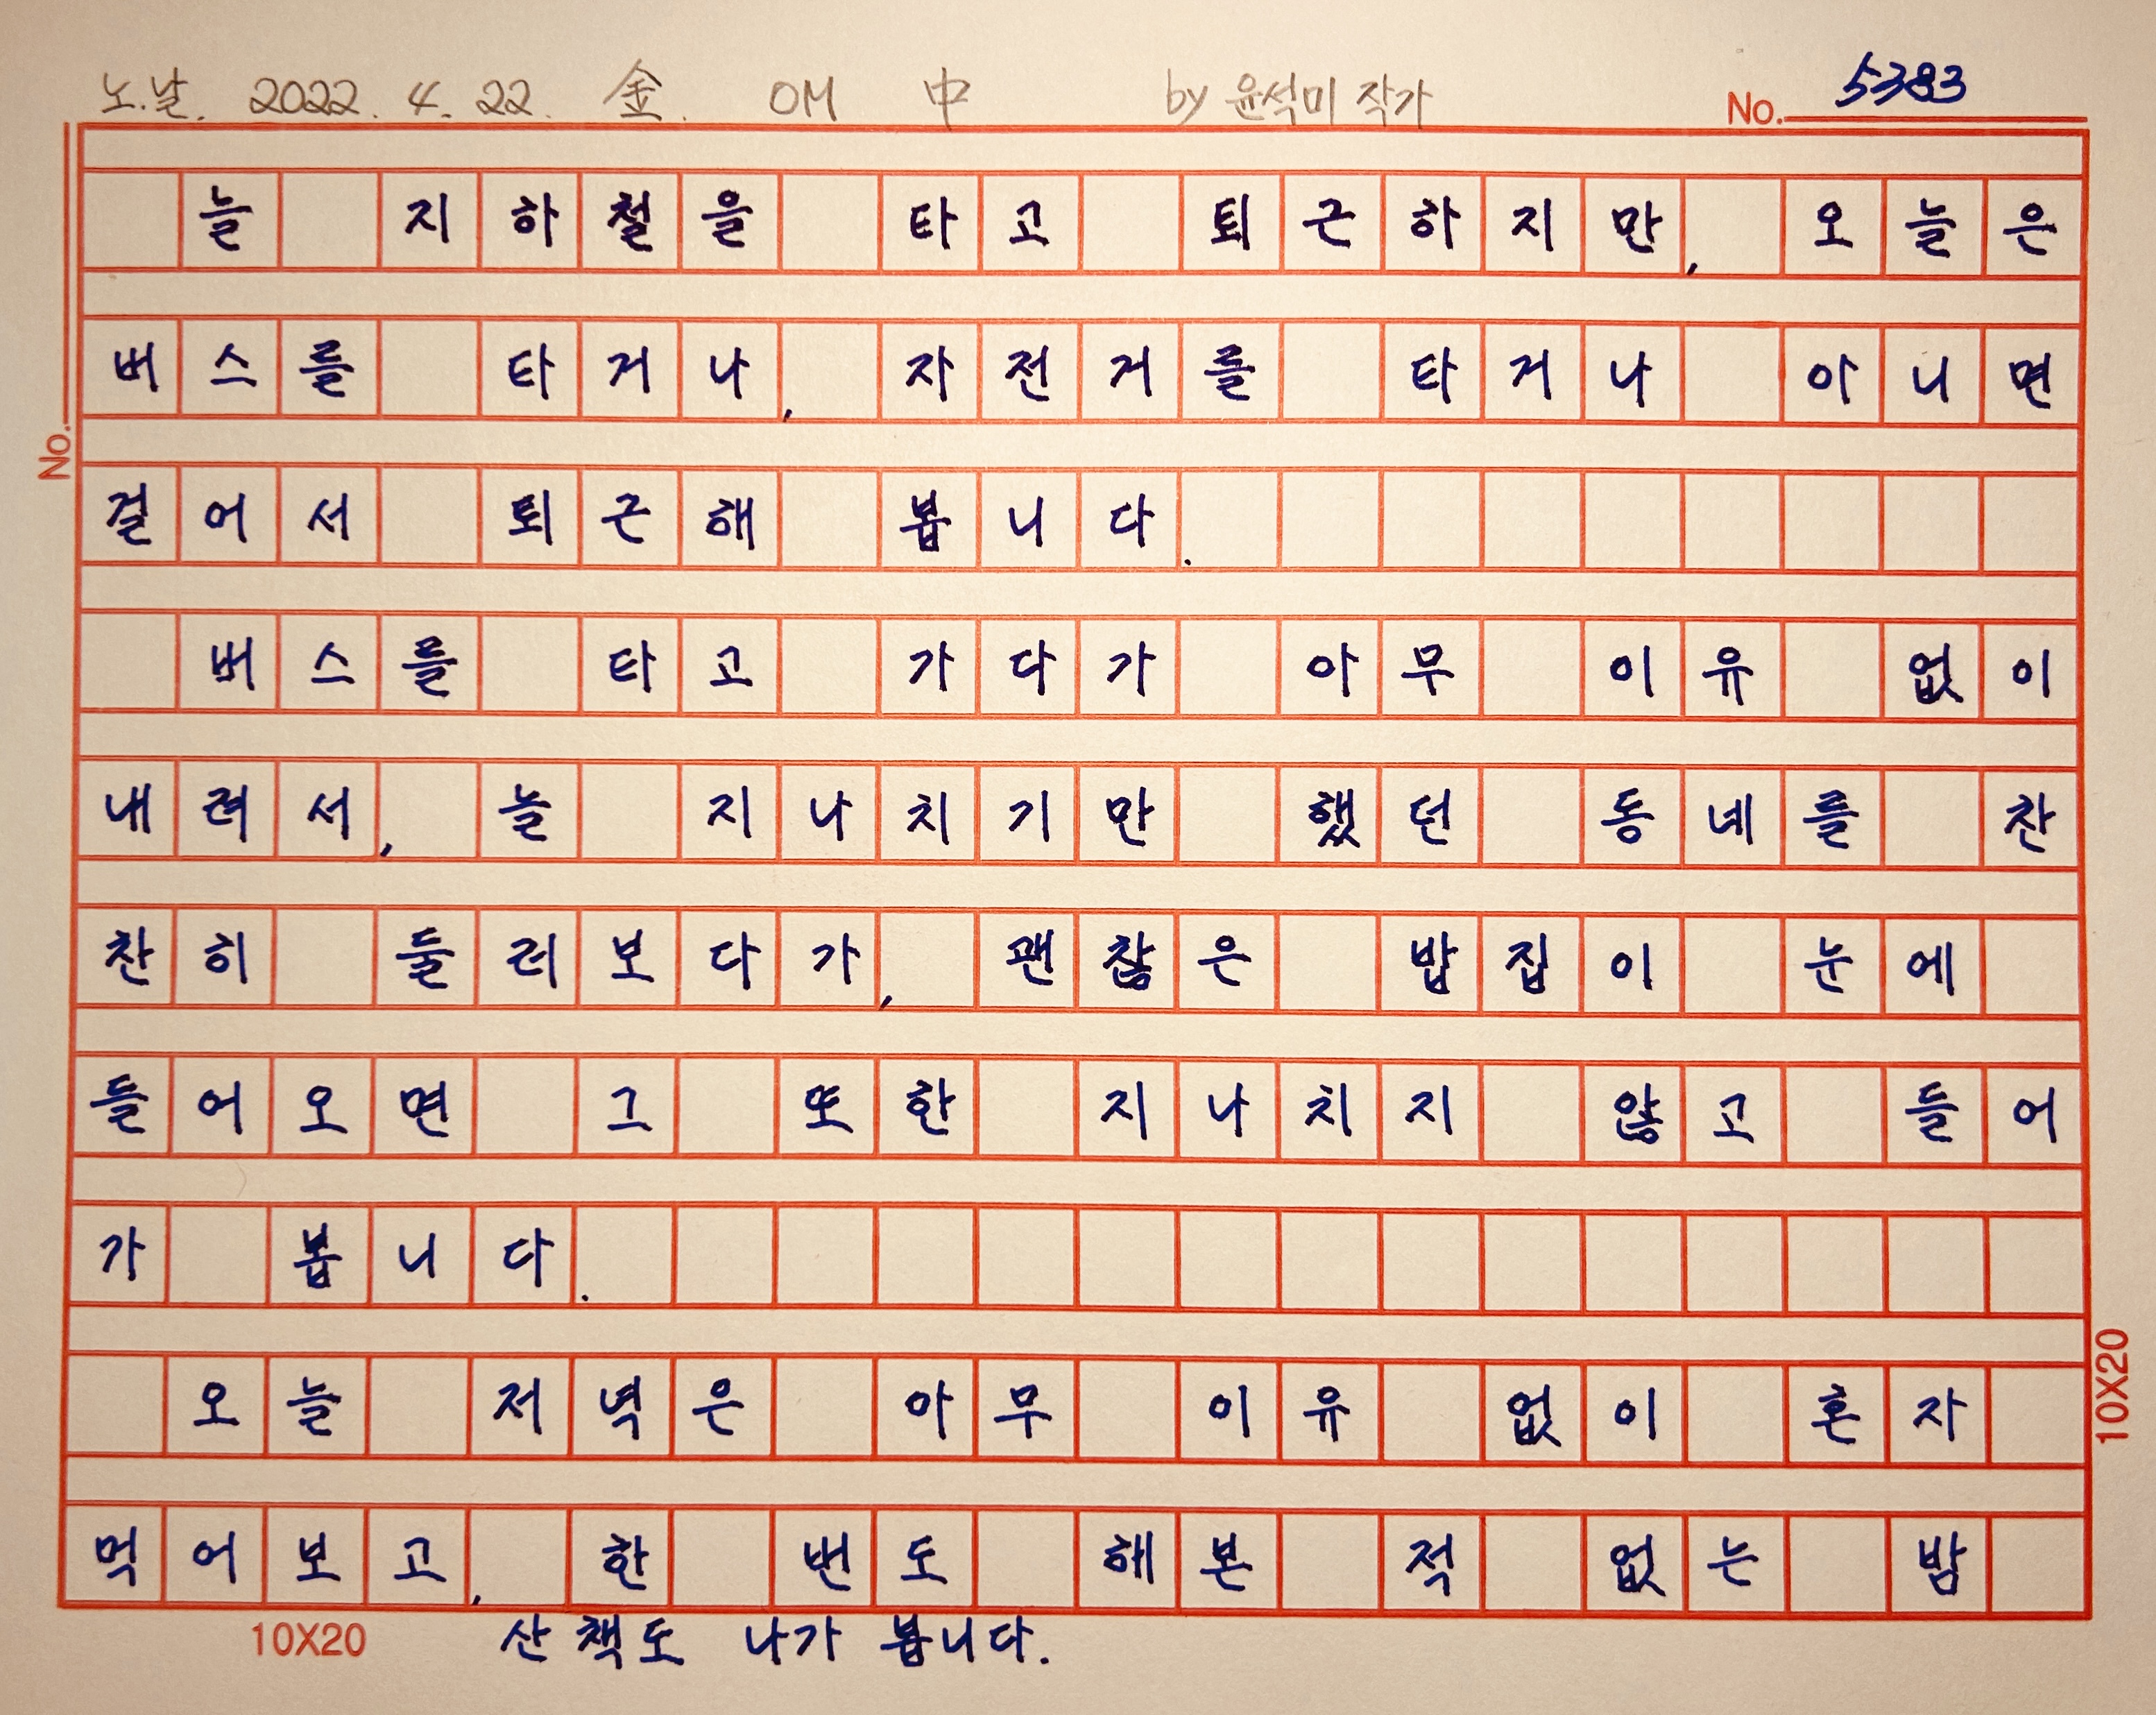 노.날. 2022. 4. 22. 金. OM 中 by 윤석미 작가 No. 5383
늘 지하철을 타고 퇴근하지만, 오늘은
버스를 타거나, 자전거를 타거나 아니면
No.
걸어서 퇴근해 봅니다.
버스를 타고 가다가 아무 이유 없이
내려서, 늘 지나치기만 했던 동네를 찬
찬히 둘러보다가, 괜찮은 밥집이 눈에
들어오면 그 또한 지나치지 않고 들어
가 봅니다.
오늘 저녁은 아무 이유 없이 혼자
10X20
먹어보고, 한 번도 해본 적 없는 밤
10X20 산책도 나가 봅니다.